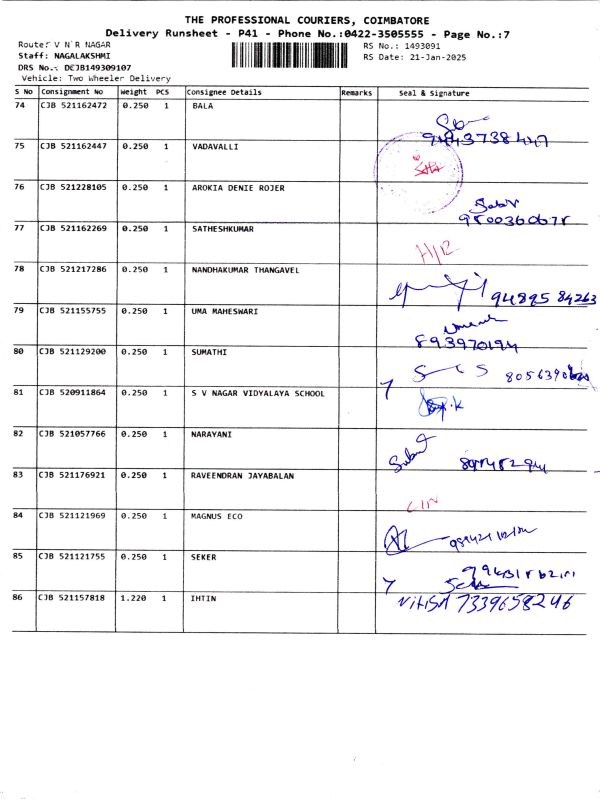 THE PROFESSIONAL COURIERS, COIMBATORE
Delivery Runsheet - P41 - Phone No.:0422-3505555 - Page No.:7
Route: V N R NAGAR RS No.: 1493091
Staff: NAGALAKSHMI RS Date: 21-Jan-2025
DRS No.: DCJB149309107
Vehicle: Two Wheeler Delivery
S No Consignment No Weight PCS Consignee Details Remarks Seal & Signature
74 CJB 521162472 0.250 1 BALA
75 CJB 521162447 0.250 1 VADAVALLI
76 CJB 521228105 0.250 1 AROKIA DENIE ROJER
77 CJB 521162269 0.250 1 SATHESHKUMAR
H/R
78 CJB 521217286 0.250 1 NANDHAKUMAR THANGAVEL
94895 84263
79 CJB 521155755 0.250 1 UMA MAHESWARI
893970194
80 CJB 521129200 0.250 1 SUMATHI
81 CJB 520911864 0.250 1 S V NAGAR VIDYALAYA SCHOOL
82 CJB 521057766 0.250 1 NARAYANI
83 CJB 521176921 0.250 1 RAVEENDRAN JAYABALAN
84 CJB 521121969 0.250 1 MAGNUS ECO
85 CJB 521121755 0.250 1 SEKER
86 CJB 521157818 1.220 1 IHTIN
7339658246